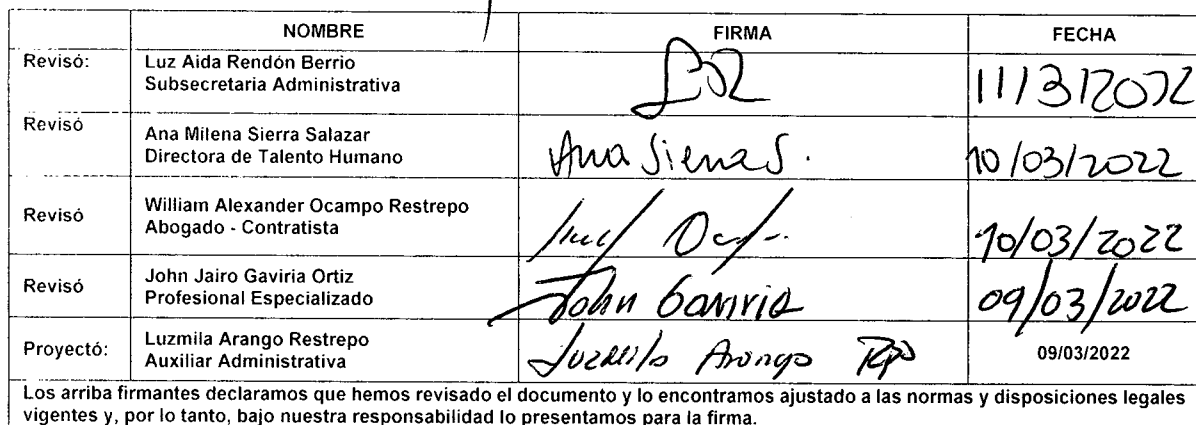 NOMBRE FIRMA FECHA
Revisó: Luz Aida Rendón Berrio
Subsecretaria Administrativa 11/3/2022
Revisó Ana Milena Sierra Salazar
Directora de Talento Humano Ana Sierra S. 10/03/2022
Revisó William Alexander Ocampo Restrepo
Abogado - Contratista 10/03/2022
Revisó John Jairo Gaviria Ortiz
Profesional Especializado John Gaviria 09/03/2022
Proyectó: Luzmila Arango Restrepo
Auxiliar Administrativa Luzmila Arango Rpo 09/03/2022
Los arriba firmantes declaramos que hemos revisado el documento y lo encontramos ajustado a las normas y disposiciones legales
vigentes y, por lo tanto, bajo nuestra responsabilidad lo presentamos para la firma.